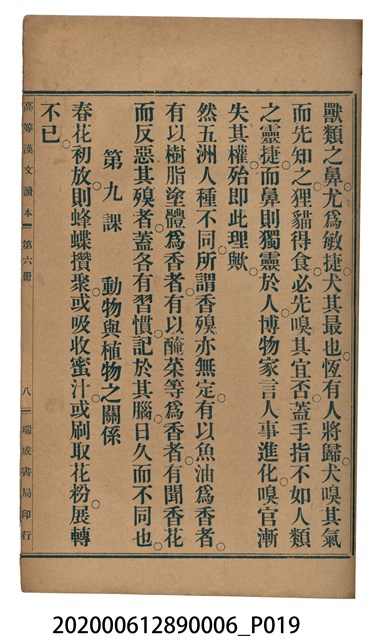 獸類之鼻。尤爲敏捷。犬其最也。恆有人將歸。犬嗅其氣
而先知之。狸貓得食。必先嗅其宜否。蓋手指不如人類
之靈捷。而鼻則獨靈於人。博物家言人事進化。嗅官漸
失其權。殆即此理歟。
然五洲人種不同。所謂香殠亦無定。有以魚油爲香者。
有以樹脂塗體爲香者。有以醃菜等爲香者。有聞香花
而反惡其殠者。蓋各有習慣。記於其腦。日久而不同也。
第九課　動物與植物之關係
春花初放。則蜂蝶攢聚。或吸收蜜汁。或刷取花粉。展轉
不已。
高等漢文讀本　第六册　八　瑞成書局印行
202000612890006_P019